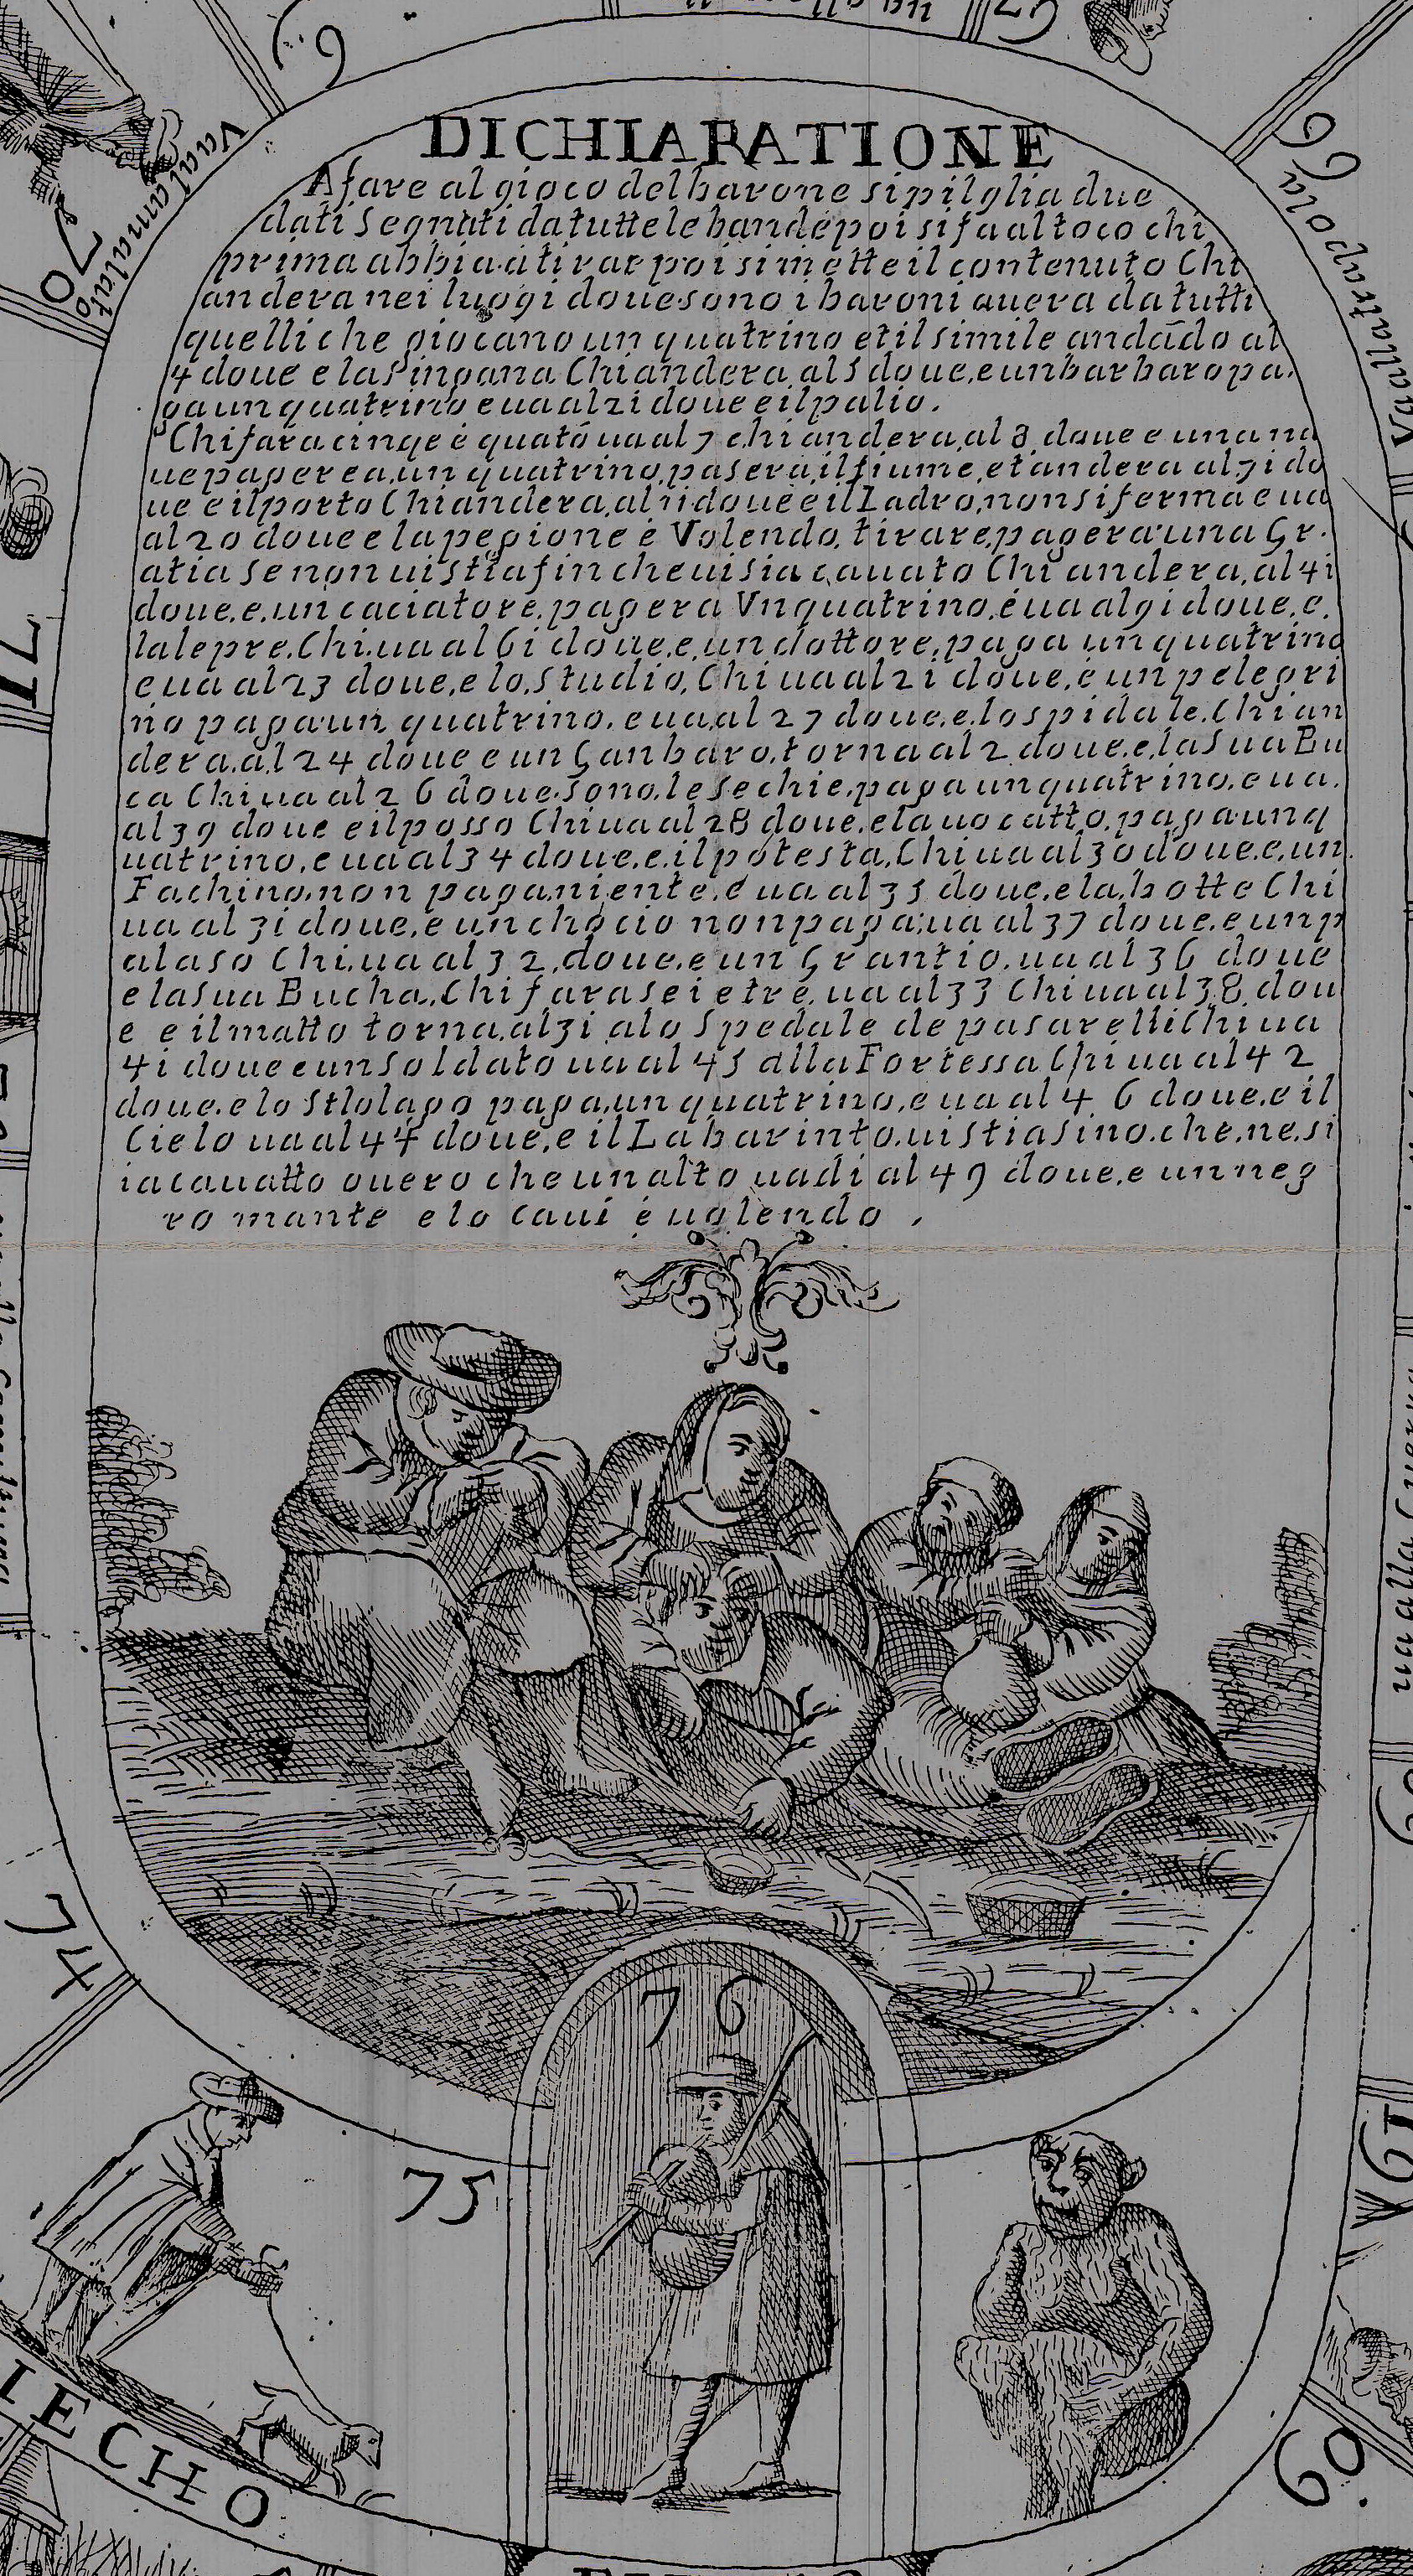 DICHIARATIONE
A fare al gioco del barone si pilglia due
dati Segnati da tutte le bande poi si fa al toco chi
prima abbia a tirar poi si mette il contenuto Chi
andera nei luogi doue sono i baroni auera da tutti
quelli che giocano un quatrino et il simile andādo al
4 doue e la Singana Chi andera al 5 doue e un barbaro pa
ga un quatrino e ua al 21 doue e il palio.
Chi fara cinqe è quatō ua al 7 chi andera al 8 doue e una na
ue pagerea un quatrino pasera il fiume et andera al 71 do
ue e il porto Chi andera al 11 doue e il Ladro non si ferma e ua
al 20 doue e la pegione e Volendo tirare pagera una Gr
atia se non ui stia fin che ui sia cauato Chi andera al 41
doue e un caciatore pagera Vn quatrino e ua al 91 doue e
la lepre. Chi ua al 61 doue e un dottore paga un quatrino
e ua al 23 doue e lo Studio, Chi ua al 21 doue e un pelegri
no paga un quatrino e ua al 27 doue e lo spidale. Chi an
dera al 24 doue e un Ganbaro torna al 2 doue e la Sua Bu
ca Chi ua al 26 doue sono le Sechie paga un quatrino e ua
al 39 doue e il posso Chi ua al 28 doue e lauocatto paga un q
uatrino e ua al 34 doue e il potesta, Chi ua al 30 doue e un
Fachino non paga niente e ua al 35 doue e la botte Chi
ua al 31 doue e un chocio non paga ua al 37 doue e un p
alaso Chi ua al 32 doue e un Grantio ua al 36 doue
e la Sua Bucha, Chi fara sei e tre ua al 33 Chi ua al 38 dou
e e il matto torna al 31 alo Spedale de pasarelli Chi ua
41 doue e un Soldato ua al 45 alla Fortessa Chi ua al 42
doue e lo Stlolago paga un quatrino e ua al 46 doue e il
Cielo ua al 44 doue e il Labarinto ui stia sino che ne si
ia cauatto ouero che un alto uadi al 49 doue e un neg
ro mante e lo caui e uolendo
66
Va al amalato
70
71
74
75
76
60
61
ua alla
IECHO